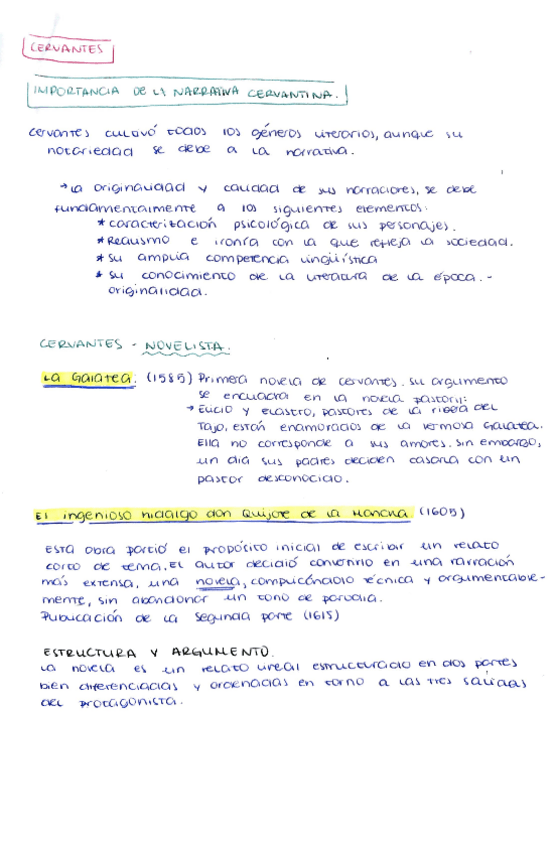 CERVANTES
IMPORTANCIA DE LA NARRATIVA CERVANTINA.
Cervantes cultivó todos los géneros literarios, aunque su
notoriedad se debe a la narrativa.
→ La originalidad y calidad de sus narraciones, se debe
fundamentalmente a los siguientes elementos:
* caracterización psicológica de sus personajes.
* Realismo e ironía con la que refleja la sociedad.
* su amplia competencia lingüística
* su conocimiento de la literatura de la época. -
originalidad.
CERVANTES - NOVELISTA.
La Galatea: (1585) Primera novela de Cervantes. Su argumento
se encuadra en la novela pastoril:
→ Elicio y elastro, pastores de la ribera del
Tajo, están enamorados de la hermosa Galatea.
Ella no corresponde a sus amores. Sin embargo,
un día sus padres deciden casarla con un
pastor desconocido.
El ingenioso hidalgo don Quijote de la Mancha (1605)
Esta obra partió el propósito inicial de escribir un relato
corto de tema. El autor decidió convertirlo en una narración
más extensa, una novela, complicándola técnica y argumentable-
mente, sin abandonar un tono de parodia.
Publicación de la segunda parte (1615)
ESTRUCTURA Y ARGUMENTO.
La novela es un relato lineal estructurado en dos partes
bien diferenciadas y ordenadas en torno a las tres salidas
del protagonista.